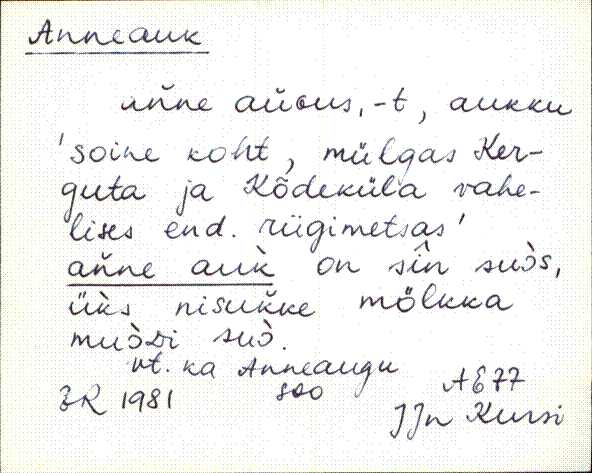 Anneauk
an̆ne aŭGus, -t, aukku
'soine koht, mülgas Ker-
guta ja Kõdeküla vahe-
lises end. riigimetsas'
an̆ne auk̀ on sîn suòs,
üks̀ nisuk̆ke mölkka
muòDi suò.
vt. ka Anneaugu
soo
ER 1981
AE77
JJn Kursi